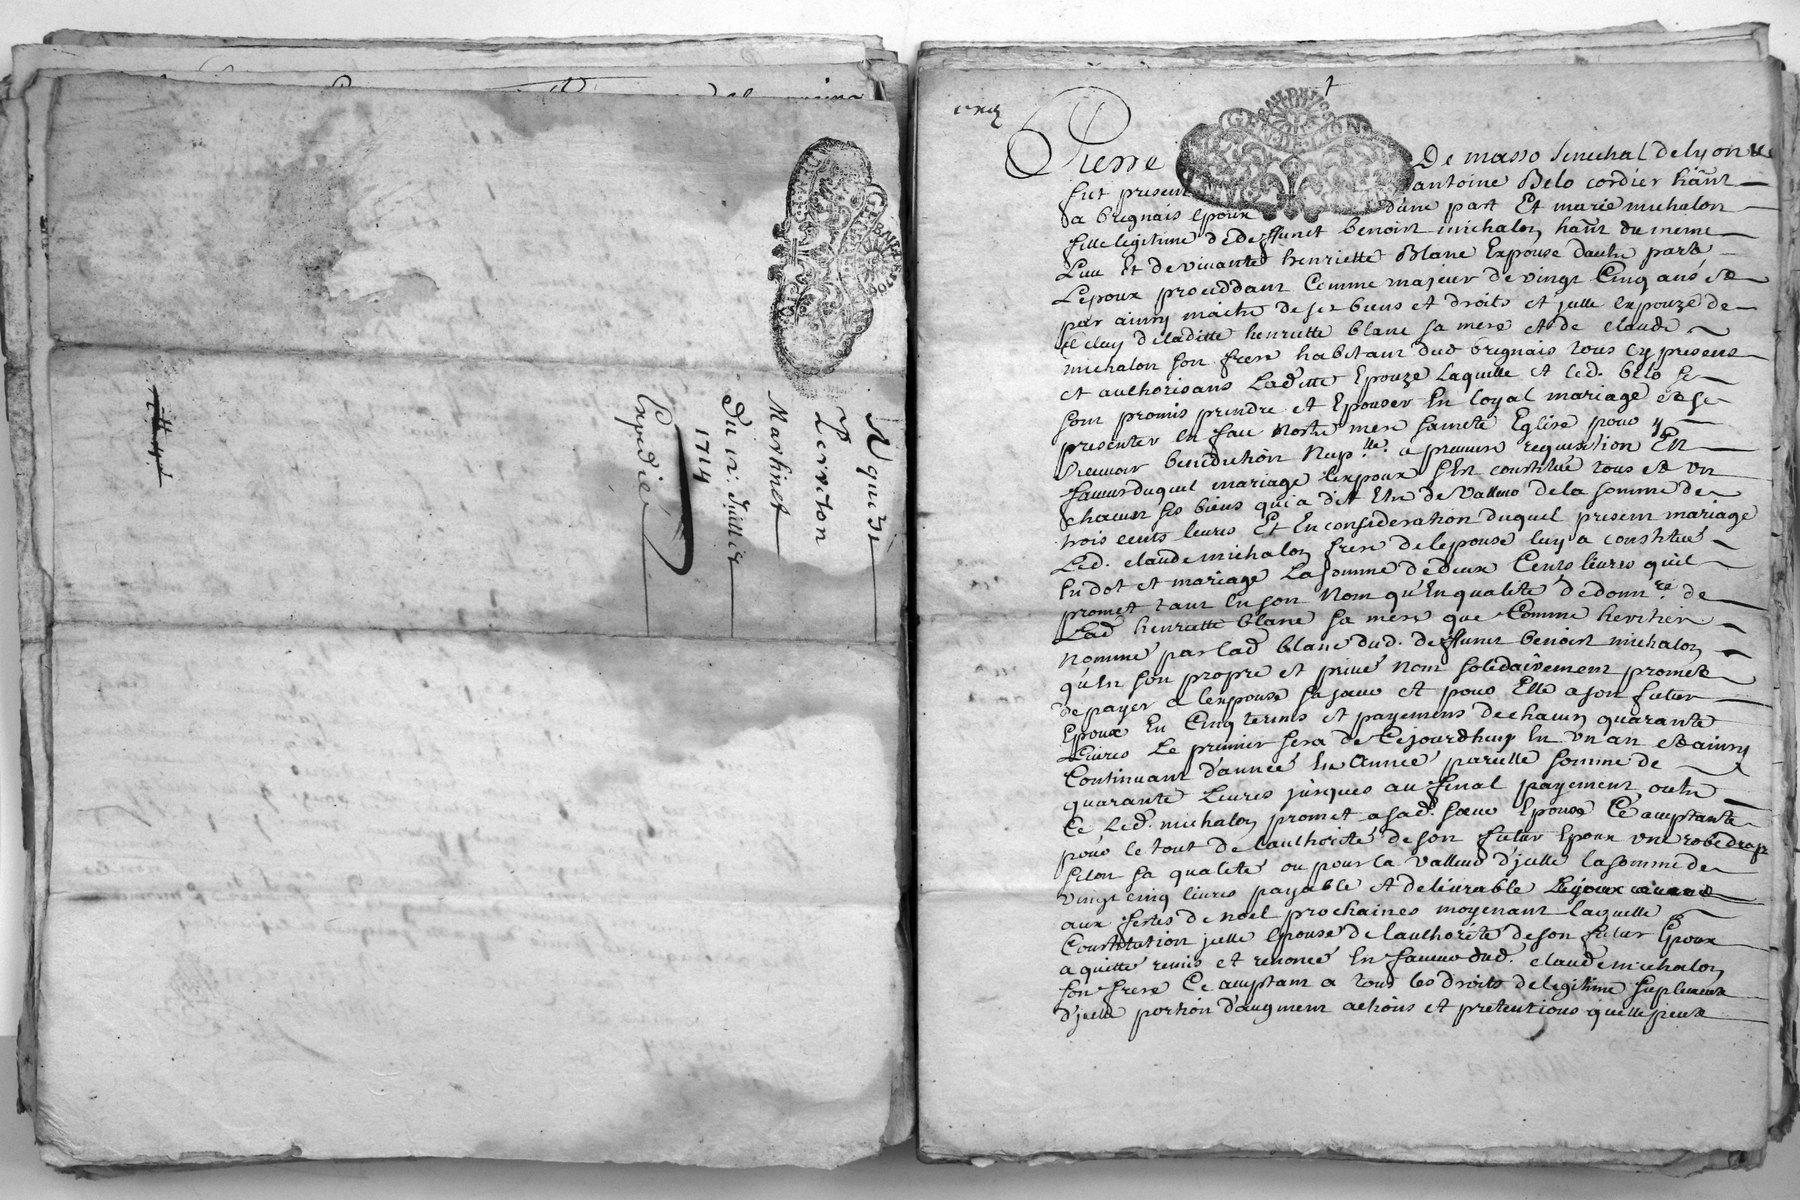 Aquise
Perriton
Martinet
Du 12: Juillet
1714
Expedié
Pierre De masso Senechal de lyon
fut present antoine Belo cordier hãnt
a brignais epoux d'une part Et marie michalon
fille legitime de deffunct benoist michalon hãnt du meme
Lieu Et de vivante henriette Blanc Expouse dautre parte
L'epoux proceddant Comme majeur de vingt Cinq ans Et
par ainsy maitre de ses biens et droits et jcelle expouze de
celuy de laditte henriette blanc sa mere et de claude
michalon son frere habitant dud brignais tous cy presens
et authorisans Laditte Epouze Laquelle et led. belo se
sont promis prendre et Epouser En loyal mariage et se
presenter en face nostre mere saincte Eglise pour y
recevoir benediction Nup.lle a premiere requisition En
faveur duquel mariage lexpoux sest constitué tous et un
chacun ses biens qui a dit Etre de valleur de la somme de
trois cents livres Et En consideration duquel present mariage
Led. claude michalon frere de lepouse luy a constitué
En dot et mariage La somme de deux Cents livres qu'il
promet tant en son Nom qu'En qualité de donn.re de
Lad henriette blanc sa mere que Comme heritier
Nommé par lad blanc dud. deffunct benoist michalon
qu'En son propre et privé Nom solidairement promet
de payer a lexpouse sa sœur et pour Elle a son futur
Epoux En Cinq termes et payemens de chacun quarante
Livres Le premier sera de Cejourdhuy En un an et ainsy
Continuant d'année En Année pareille somme de
quarante Livres jusques au final payement outre
Ce Led. michalon promet a sad. sœur Epouse Ce acceptante
pour le tout de l'authorité de son futur Epoux une robe drap
selon sa qualité ou pour la valleur d'jcelle la somme de
vingt cinq livres payable et delivrable
aux festes de noel prochaines moyenant laquelle
Constitution jcelle epouse de l'authorité de son futur Epoux
a quitté remis et renoncé En faveur dud. claude michalon
son frere Ce acceptant a tous les droits de legitime suplement
d'jcelle portion d'augment actions et pretentions quelle peut